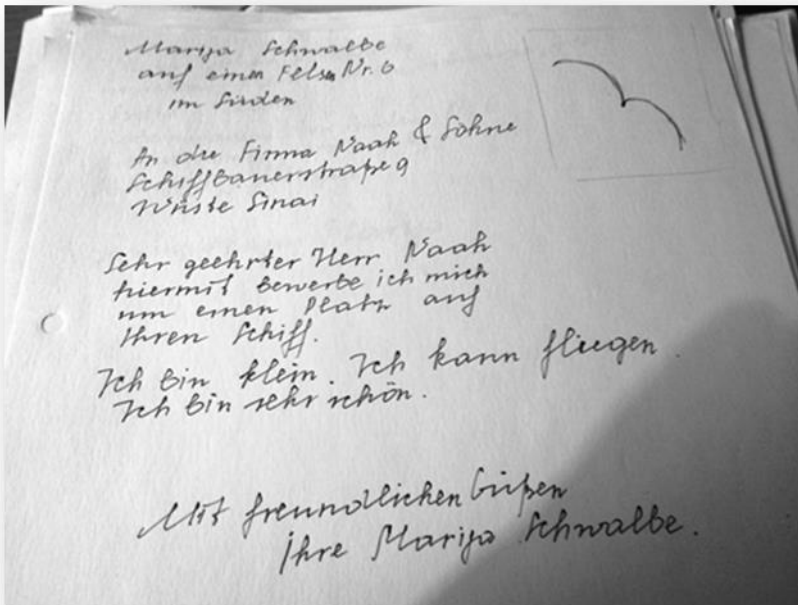 Marija Schwalbe
auf einen Felsen Nr. 6
im Süden
An die Firma Naah & Söhne
Schiffbauerstraße 9
Wüste Sinai
Sehr geehrter Herr Naah
hiermit bewerbe ich mich
um einen Platz auf
Ihren Schiff.
Ich bin klein. Ich kann fliegen.
Ich bin sehr schön.
Mit freundlichen Grüßen
Ihre Marija Schwalbe.